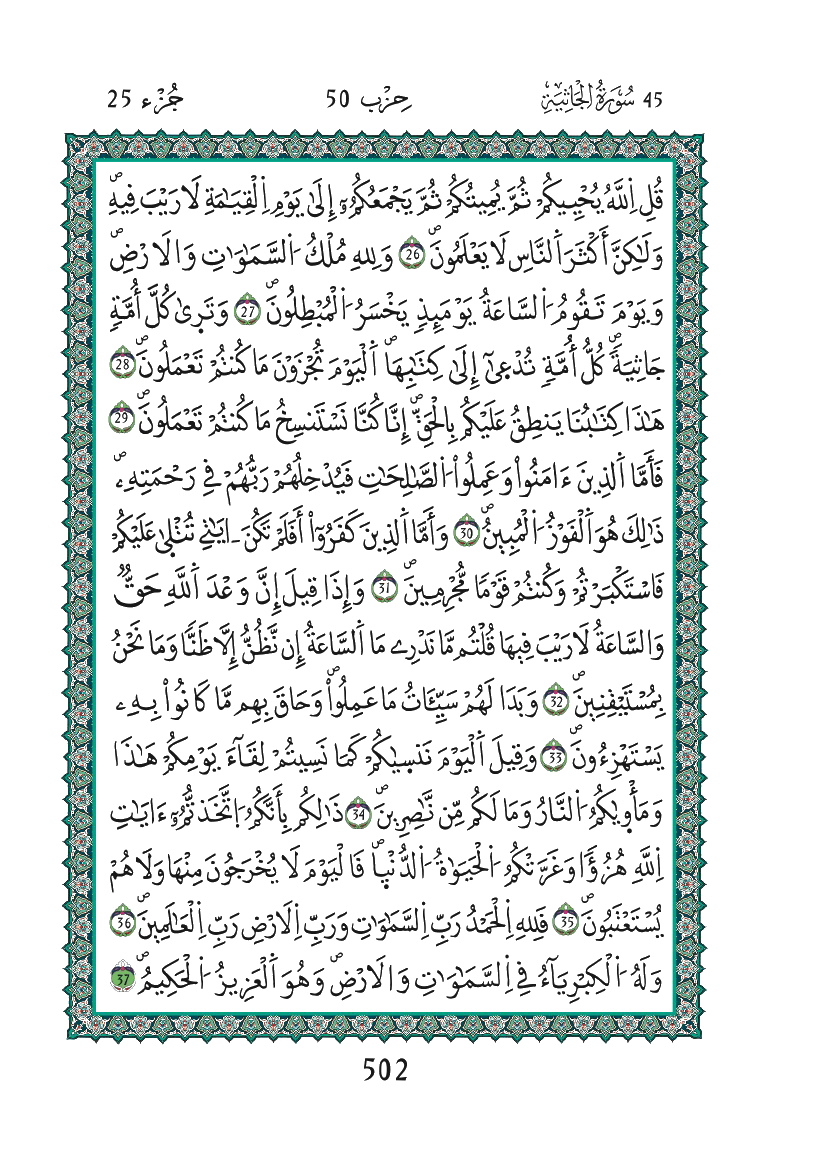 45 سُورَةُ الْجَاثِيَةِ حِزْب 50 جُزْء 25
قُلِ اِ۬للَّهُ يُحْيِيكُمْ ثُمَّ يُمِيتُكُمْ ثُمَّ يَجْمَعُكُمُۥٓ إِلَىٰ يَوْمِ اِ۬لْقِيَٰمَةِ لَا رَيْبَ فِيهِۖ
وَلَٰكِنَّ أَكْثَرَ اَ۬لنَّاسِ لَا يَعْلَمُونَۖ 26 وَلِلهِ مُلْكُ اُ۬لسَّمَٰوَٰتِ وَالَارْضِۖ
وَيَوْمَ تَقُومُ اُ۬لسَّاعَةُ يَوْمَئِذٖ يَخْسَرُ اُ۬لْمُبْطِلُونَۖ 27 وَتَرَىٰ كُلَّ أُمَّةٖ
جَاثِيَةٗۖ كُلُّ أُمَّةٖ تُدْعَىٰٓ إِلَىٰ كِتَٰبِهَاۖ اَ۬لْيَوْمَ تُجْزَوْنَ مَا كُنتُمْ تَعْمَلُونَۖ 28
هَٰذَا كِتَٰبُنَا يَنطِقُ عَلَيْكُم بِالْحَقِّۖ إِنَّا كُنَّا نَسْتَنسِخُ مَا كُنتُمْ تَعْمَلُونَۖ 29
فَأَمَّا اَ۬لذِينَ ءَامَنُواْ وَعَمِلُواْ اُ۬لصَّٰلِحَٰتِ فَيُدْخِلُهُمْ رَبُّهُمْ فِے رَحْمَتِهِۦۖ
ذَٰلِكَ هُوَ اَ۬لْفَوْزُ اُ۬لْمُبِينُۖ 30 وَأَمَّا اَ۬لذِينَ كَفَرُوٓاْ أَفَلَمْ تَكُنَ ـايَٰتِے تُتْلَىٰ عَلَيْكُمْ
فَاسْتَكْبَرْتُمْ وَكُنتُمْ قَوْماٗ مُّجْرِمِينَۖ 31 وَإِذَا قِيلَ إِنَّ وَعْدَ اَ۬للَّهِ حَقّٞۖ
وَالسَّاعَةُ لَا رَيْبَ فِيهَا قُلْتُم مَّا نَدْرِے مَا اَ۬لسَّاعَةُ إِن نَّظُنُّ إِلَّا ظَنّاٗ وَمَا نَحْنُ
بِمُسْتَيْقِنِينَۖ 32 وَبَدَا لَهُمْ سَيِّـَٔاتُ مَا عَمِلُواْۖ وَحَاقَ بِهِم مَّا كَانُواْ بِهِۦ
يَسْتَهْزِءُونَۖ 33 وَقِيلَ اَ۬لْيَوْمَ نَنسَىٰكُمْ كَمَا نَسِيتُمْ لِقَآءَ يَوْمِكُمْ هَٰذَا
وَمَأْوَىٰكُمُ اُ۬لنَّارُ وَمَا لَكُم مِّن نَّٰصِرِينَۖ 34 ذَٰلِكُم بِأَنَّكُمُ اُ۪تَّخَذتُّمُۥٓ ءَايَٰتِ
اِ۬للَّهِ هُزُؤاٗ وَغَرَّتْكُمُ اُ۬لْحَيَوٰةُ اُ۬لدُّنْي۪اۖ فَالْيَوْمَ لَا يُخْرَجُونَ مِنْهَا وَلَا هُمْ
يُسْتَعْتَبُونَۖ 35 فَلِلهِ اِ۬لْحَمْدُ رَبِّ اِ۬لسَّمَٰوَٰتِ وَرَبِّ اِ۬لَارْضِ رَبِّ اِ۬لْعَٰلَمِينَۖ 36
وَلَهُ اُ۬لْكِبْرِيَآءُ فِے اِ۬لسَّمَٰوَٰتِ وَالَارْضِۖ وَهُوَ اَ۬لْعَزِيزُ اُ۬لْحَكِيمُۖ 37
502